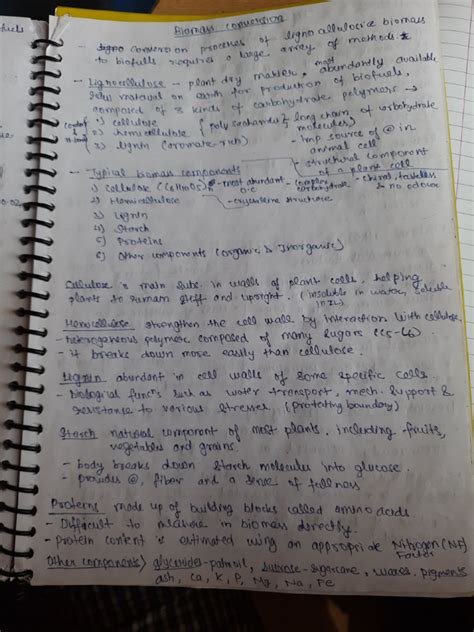 Biomass conversion
- ligno conversion processes of lignocellulosic biomass
to biofuels requires a large array of methods.
- Lignocellulose - plant dry matter, most abundantly available
raw material on earth for production of biofuels,
composed of 2 kinds of carbohydrate polymers →
1) cellulose
2) hemicellulose { polysaccharide } long chain of carbohydrate
molecules)
3) lignin (aromatic-rich)
- imp source of @ in
animal cell
- structural component
of a plant cell
- Typical biomass components
1) Cellulose (C6H10O5) - most abundant o.c - complex carbohydrate - chiral, tasteless & no odour
2) Hemicellulose - crystalline structure
3) Lignin
4) Starch
5) Proteins
6) Other components (organic & Inorganic)
Cellulose is main subs in walls of plant cells, helping
plants to remain stiff and upright. (insoluble in water, soluble
in
Hemicellulose strengthen the cell wall by interaction with cellulose
- heterogeneous polymer composed of many sugars (C5-C6).
- it breaks down more easily than cellulose.
Lignin abundant in cell walls of some specific cells
- biological func's such as water transport, mech. support &
resistance to various stresses (protecting boundary)
Starch natural component of most plants, including fruits,
vegetables and grains.
- body breaks down starch molecules into glucose.
- provides @, fiber and a sense of fullness
Proteins made up of building blocks called amino acids
- Difficult to measure in biomass directly.
- protein content is estimated using an appropriate Nitrogen (NF)
Factor
Other components > glycerides- sucrose-sugarcane, waxes, pigments
ash, Ca, K, P, Mg, Na, Fe